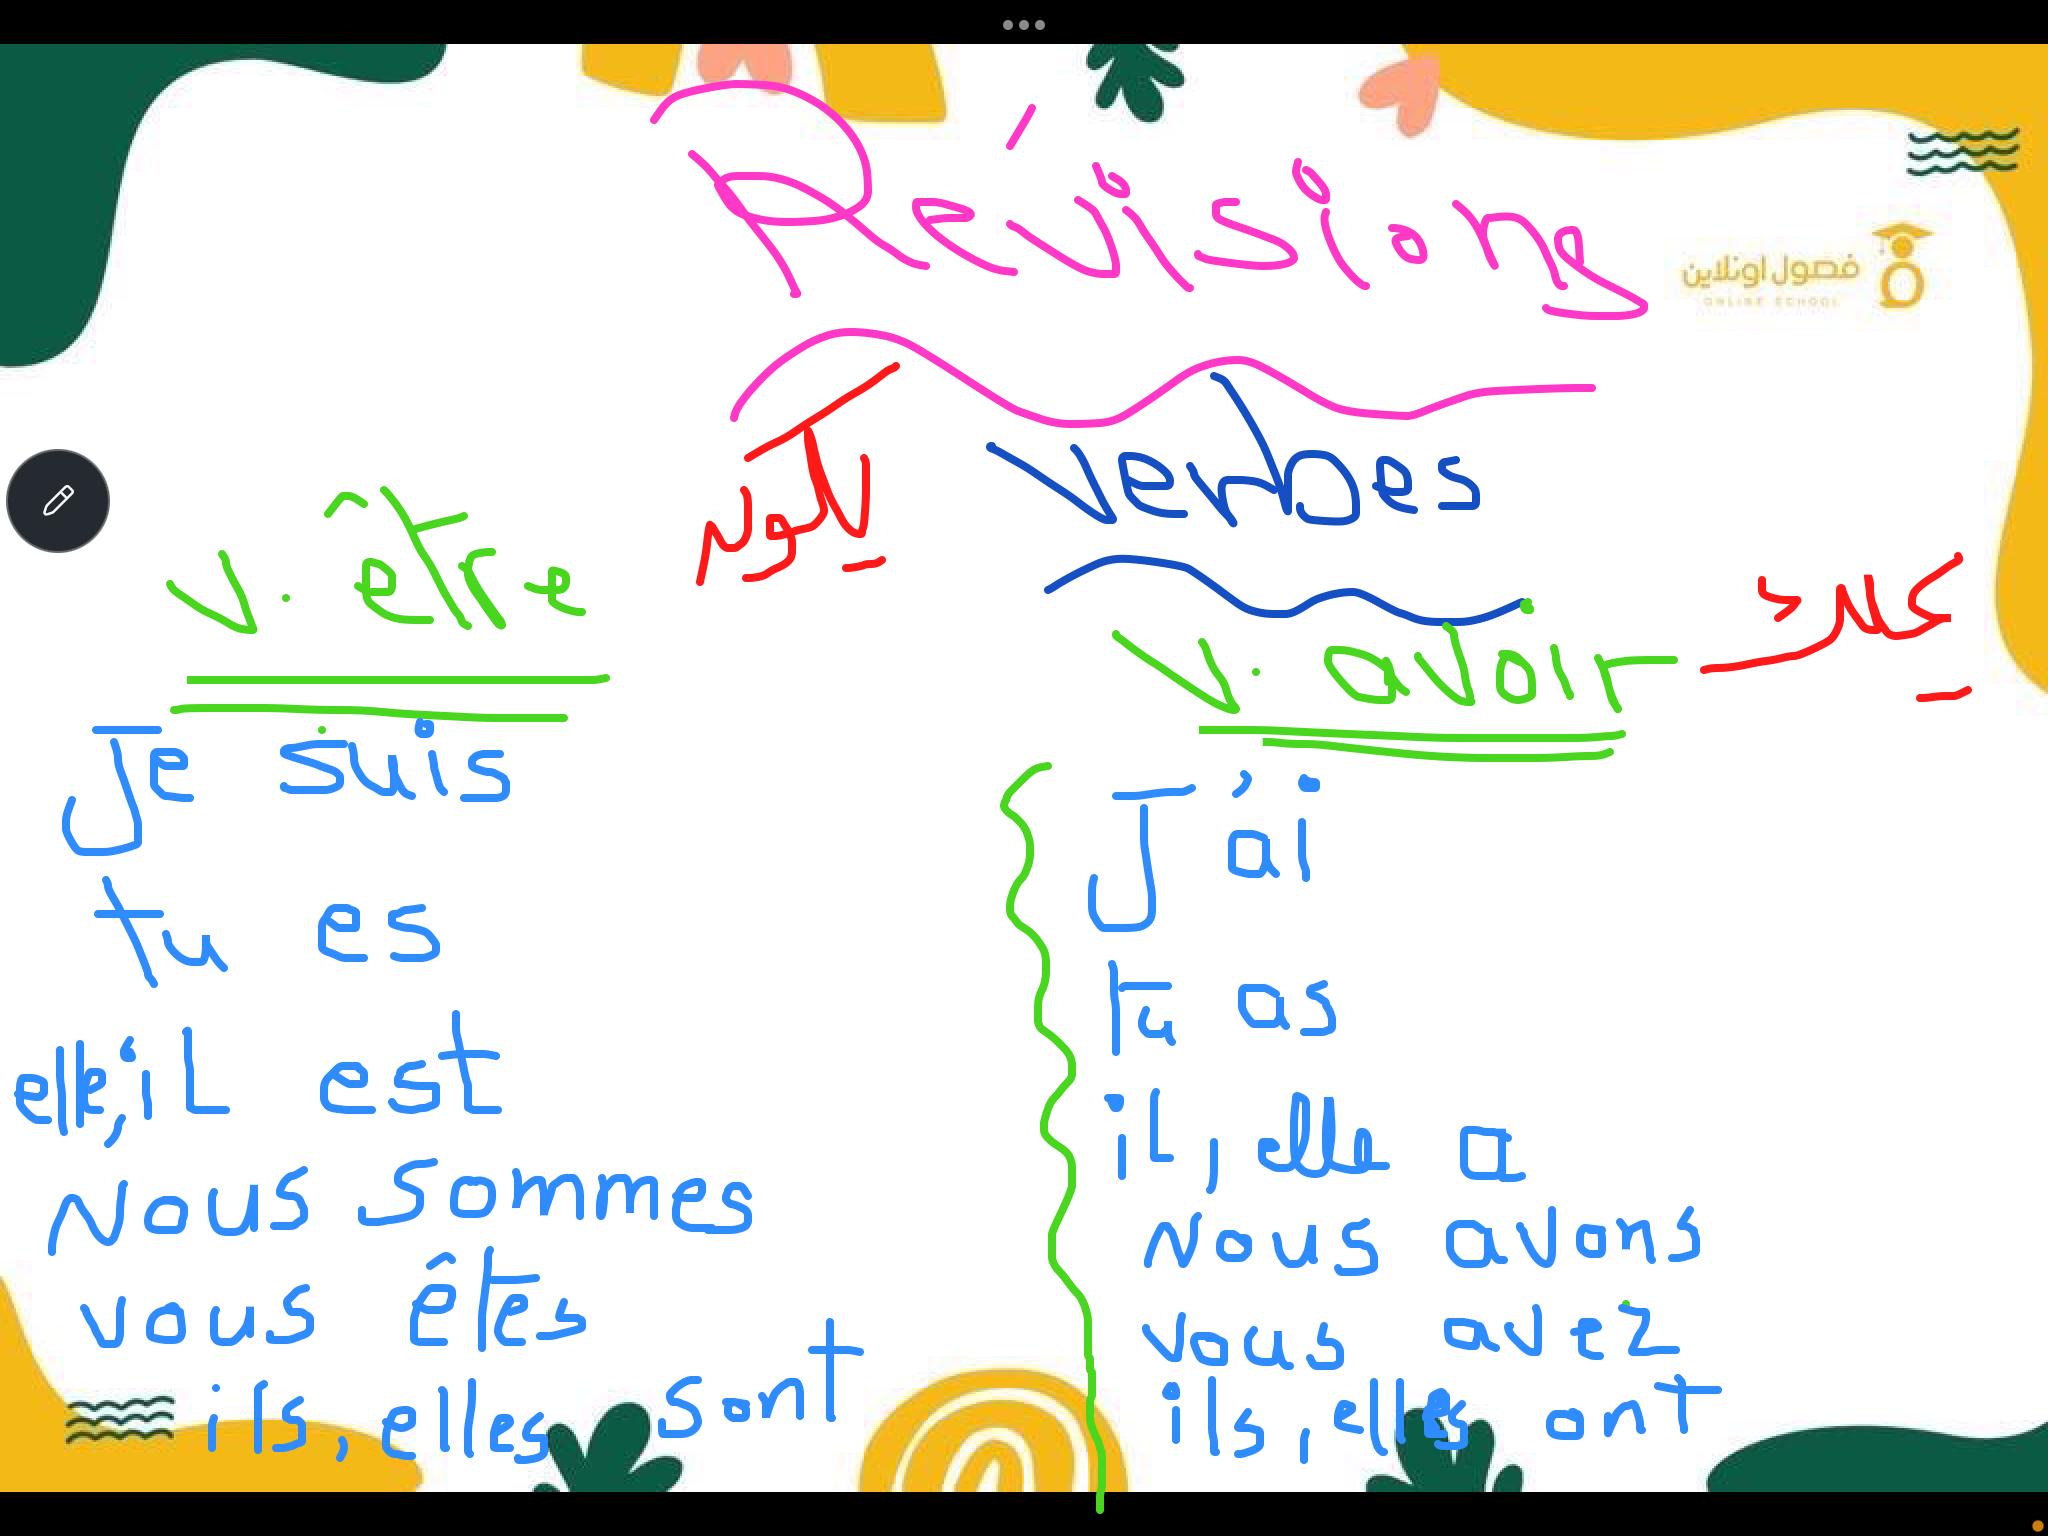 Révisions
فصول اونلاين
ONLINE SCHOOL
verbes
v. être
يكون
v. avoir
يملك
Je suis
tu es
elle, il est
Nous sommes
vous êtes
ils, elles sont
J'ai
tu as
il, elle a
Nous avons
vous avez
ils, elles ont